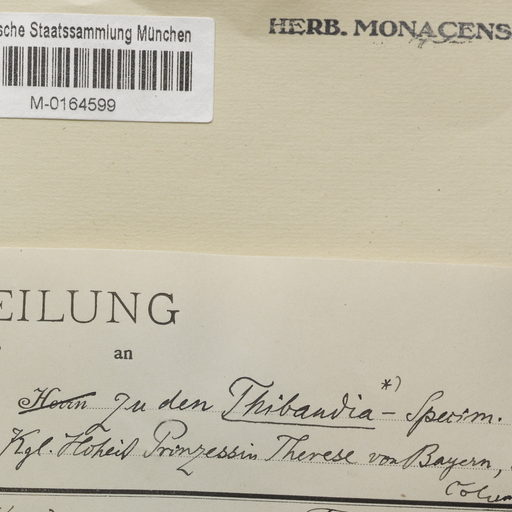 sche Staatssammlung München
M-0164599
HERB. MONACENS
EILUNG
an
Herrn Zu den Thibaudia*)- Specim.
Kgl. Hoheit Prinzessin Therese von Bayern,